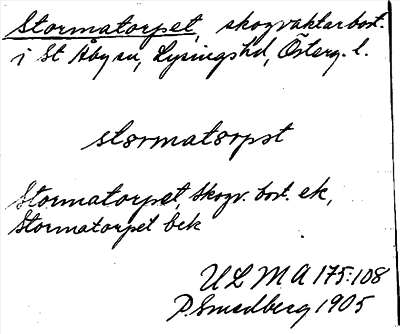 Stormatorpet, skogvaktarbost.
i St Åby sn, Lysings hd, Österg. l.
stormatorpet
Stormatorpet, skogv. bost. ek,
Stormatorpet bek
ULMA 175:108
P. Smedberg 1905